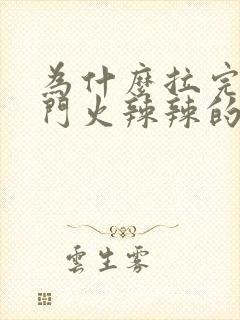 為什麼拉完
門火辣辣的
雲生雾